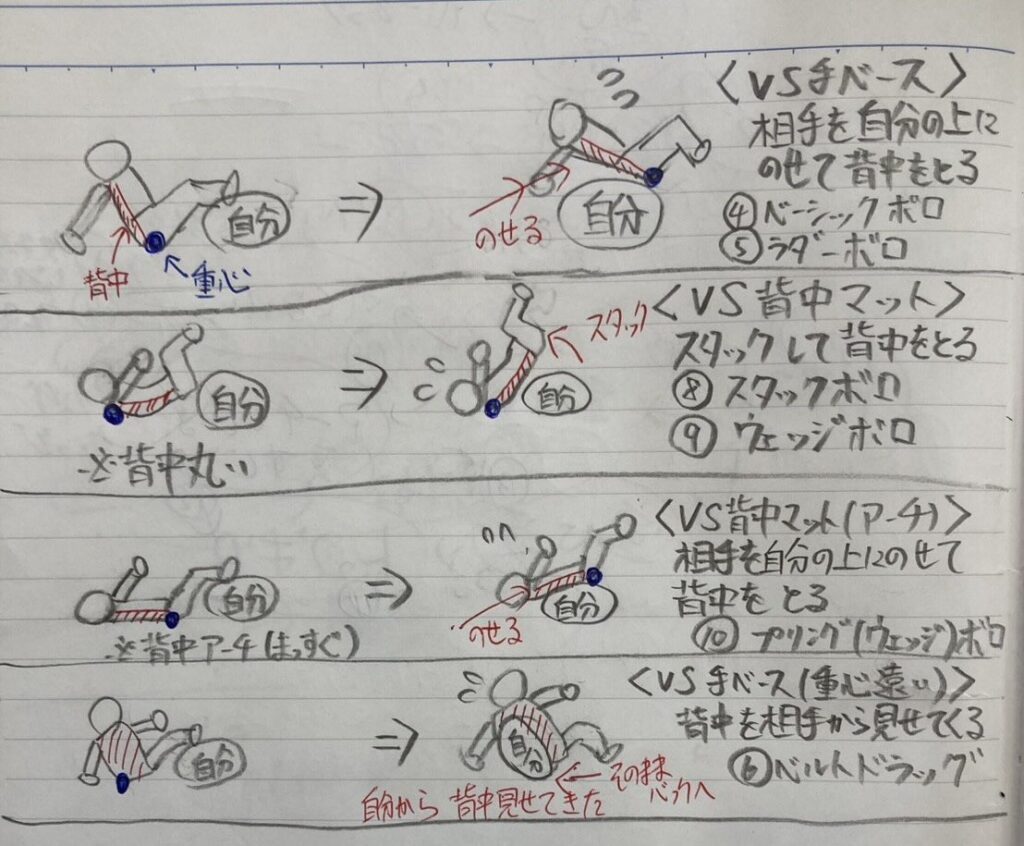 <VS手ベース>
相手を自分の上に
のせて背中をとる
④ベーシックボロ
⑤ラダーボロ
自分
⇒
自分
のせる
背中
重心
<VS背中マット>
スタックして背中をとる
⑧スタックボロ
⑨ウェッジボロ
自分
⇒
自分
スタック
※背中丸い
<VS背中マット(アーチ)>
相手を自分の上にのせて
背中をとる
⑩プリング(ウェッジ)ボロ
自分
⇒
自分
のせる
※背中アーチ(まっすぐ)
<VS手ベース(重心遠い)>
背中を相手から見せてくる
⑥ベルトドラッグ
自分
⇒
自分
自分から背中見せてきた
そのまま
バックへ